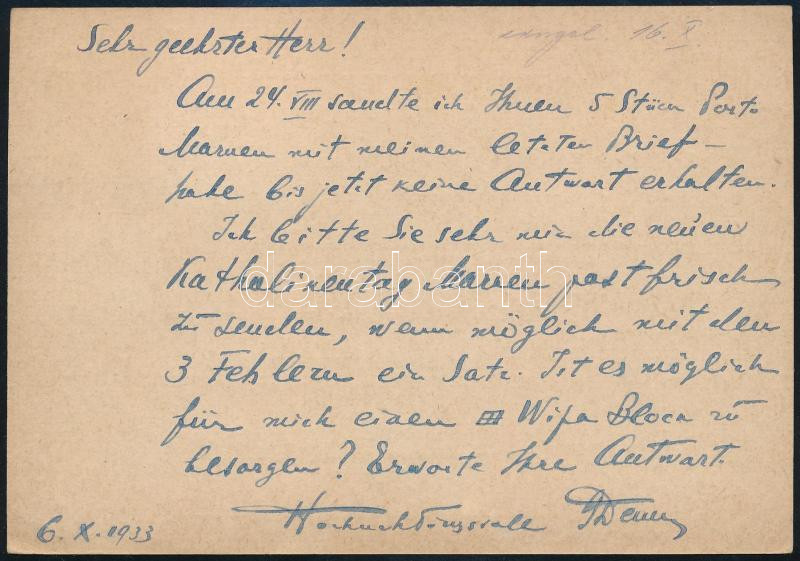 Sehr geehrter Herr!
16. X.
Am 24. VIII sandte ich Ihnen 5 Stück Porto
Marken mit meinen letzten Brief –
habe bis jetzt keine Antwort erhalten.
Ich bitte Sie sehr mir die neuen
Katholikentag Marken postfrisch
zu senden, wenn möglich mit den
3 Fehlern ein Satz. Ist es möglich
für mich einen Wipa Block zu
besorgen? Erwarte Ihre Antwort.
Hochachtungsvoll
6. X. 1933
darabanth